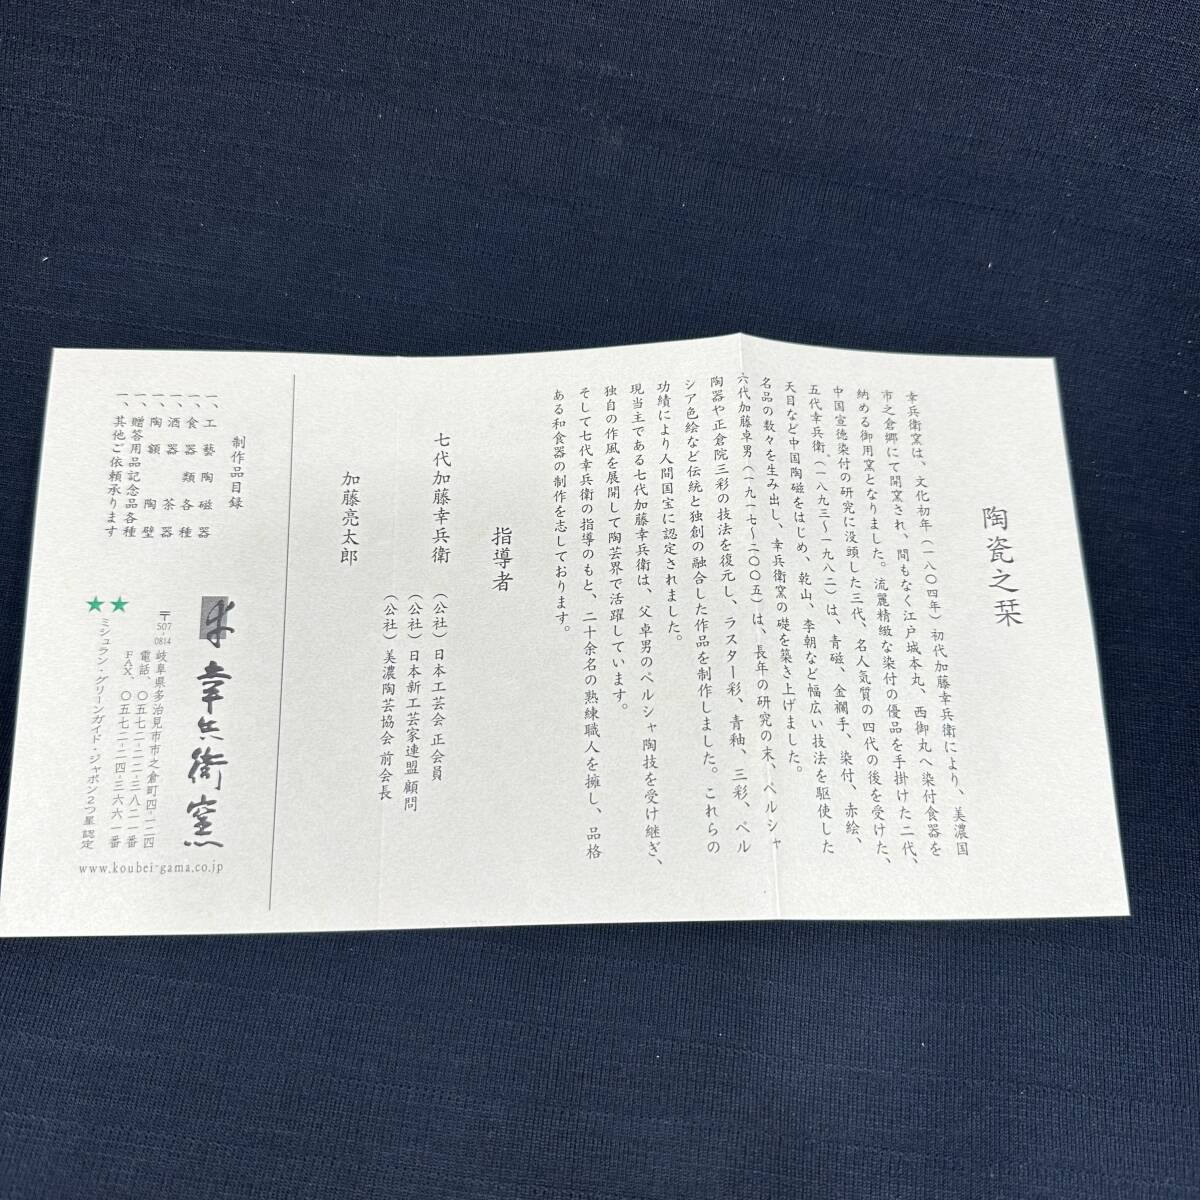 陶瓷之栞
幸兵衛窯は、文化初年（一八〇四年）初代加藤幸兵衛により、美濃国
市之倉郷にて開窯され、間もなく江戸城本丸、西御丸へ染付食器を
納める御用窯となりました。流麗精緻な染付の優品を手掛けた二代、
中国宣徳染付の研究に没頭した三代、名人気質の四代の後を受けた、
五代幸兵衛。（一八九三〜一九八二）は、青磁、金襴手、染付、赤絵、
天目など中国陶磁をはじめ、乾山、李朝など幅広い技法を駆使した
名品の数々を生み出し、幸兵衛窯の礎を築き上げました。
六代加藤卓男（一九一七〜二〇〇五）は、長年の研究の末、ペルシャ
陶器や正倉院三彩の技法を復元し、ラスター彩、青釉、三彩、ペル
シア色絵など伝統と独創の融合した作品を制作しました。これらの
功績により人間国宝に認定されました。
現当主である七代加藤幸兵衛は、父卓男のペルシャ陶技を受け継ぎ、
独自の作風を展開して陶芸界で活躍しています。
そして七代幸兵衛の指導のもと、二十余名の熟練職人を擁し、品格
ある和食器の制作を志しております。
指導者
七代加藤幸兵衛
（公社）日本工芸会 正会員
（公社）日本新工芸家連盟 顧問
（公社）美濃陶芸協会 前会長
加藤亮太郎
制作品目録
一、工藝陶磁器
一、食器類各種
一、酒器 茶器
一、陶額 陶壁
一、贈答用品記念品各種
一、其他ご依頼承ります
幸兵衛窯
〒507 0814 岐阜県多治見市市之倉町四-一二四
電話、〇五七二-二二-三八二一番
FAX、〇五七二-二四-三六六一番
★★ ミシュラン・グリーンガイド・ジャポン2つ星 認定
www.koubei-gama.co.jp